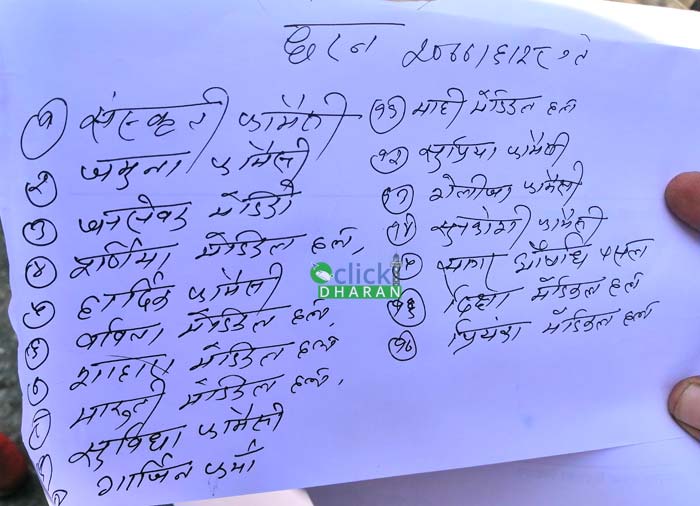 धरान २०७७/६/२८ गते
१ संस्कृती फार्मेसी
२ जमुना फार्मेसी
३ मेडिको
४ मेडिकल हल,
५ हार्दिक फार्मेसी
६ बबिता मेडिकल हल,
७ मेडिकल हल
८ मारुती मेडिकल हल,
९ सुविधा फार्मेसी
१० फर्मा
११ माही मेडिकल हल
१२ सुप्रिया फार्मेसी
१३ शैलीजा फार्मेसी
१४ सुनकोशी फार्मेसी
१५ औषधि पसल
१६ दिक्षा मेडिकल हल
१७ प्रियंका मेडिकल हल
click
DHARAN